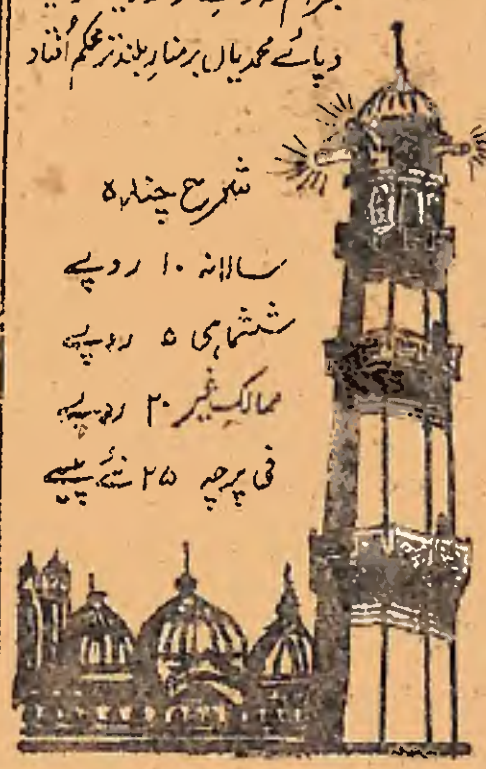 وپائے محمدیاں بر منار بلند تر محکم افتاد
شرح چندہ
سالانہ ۱۰ روپے
ششماہی ۵ روپے
ممالک غیر ۲۰ روپے
فی پرچہ ۲۵ نئے پیسے